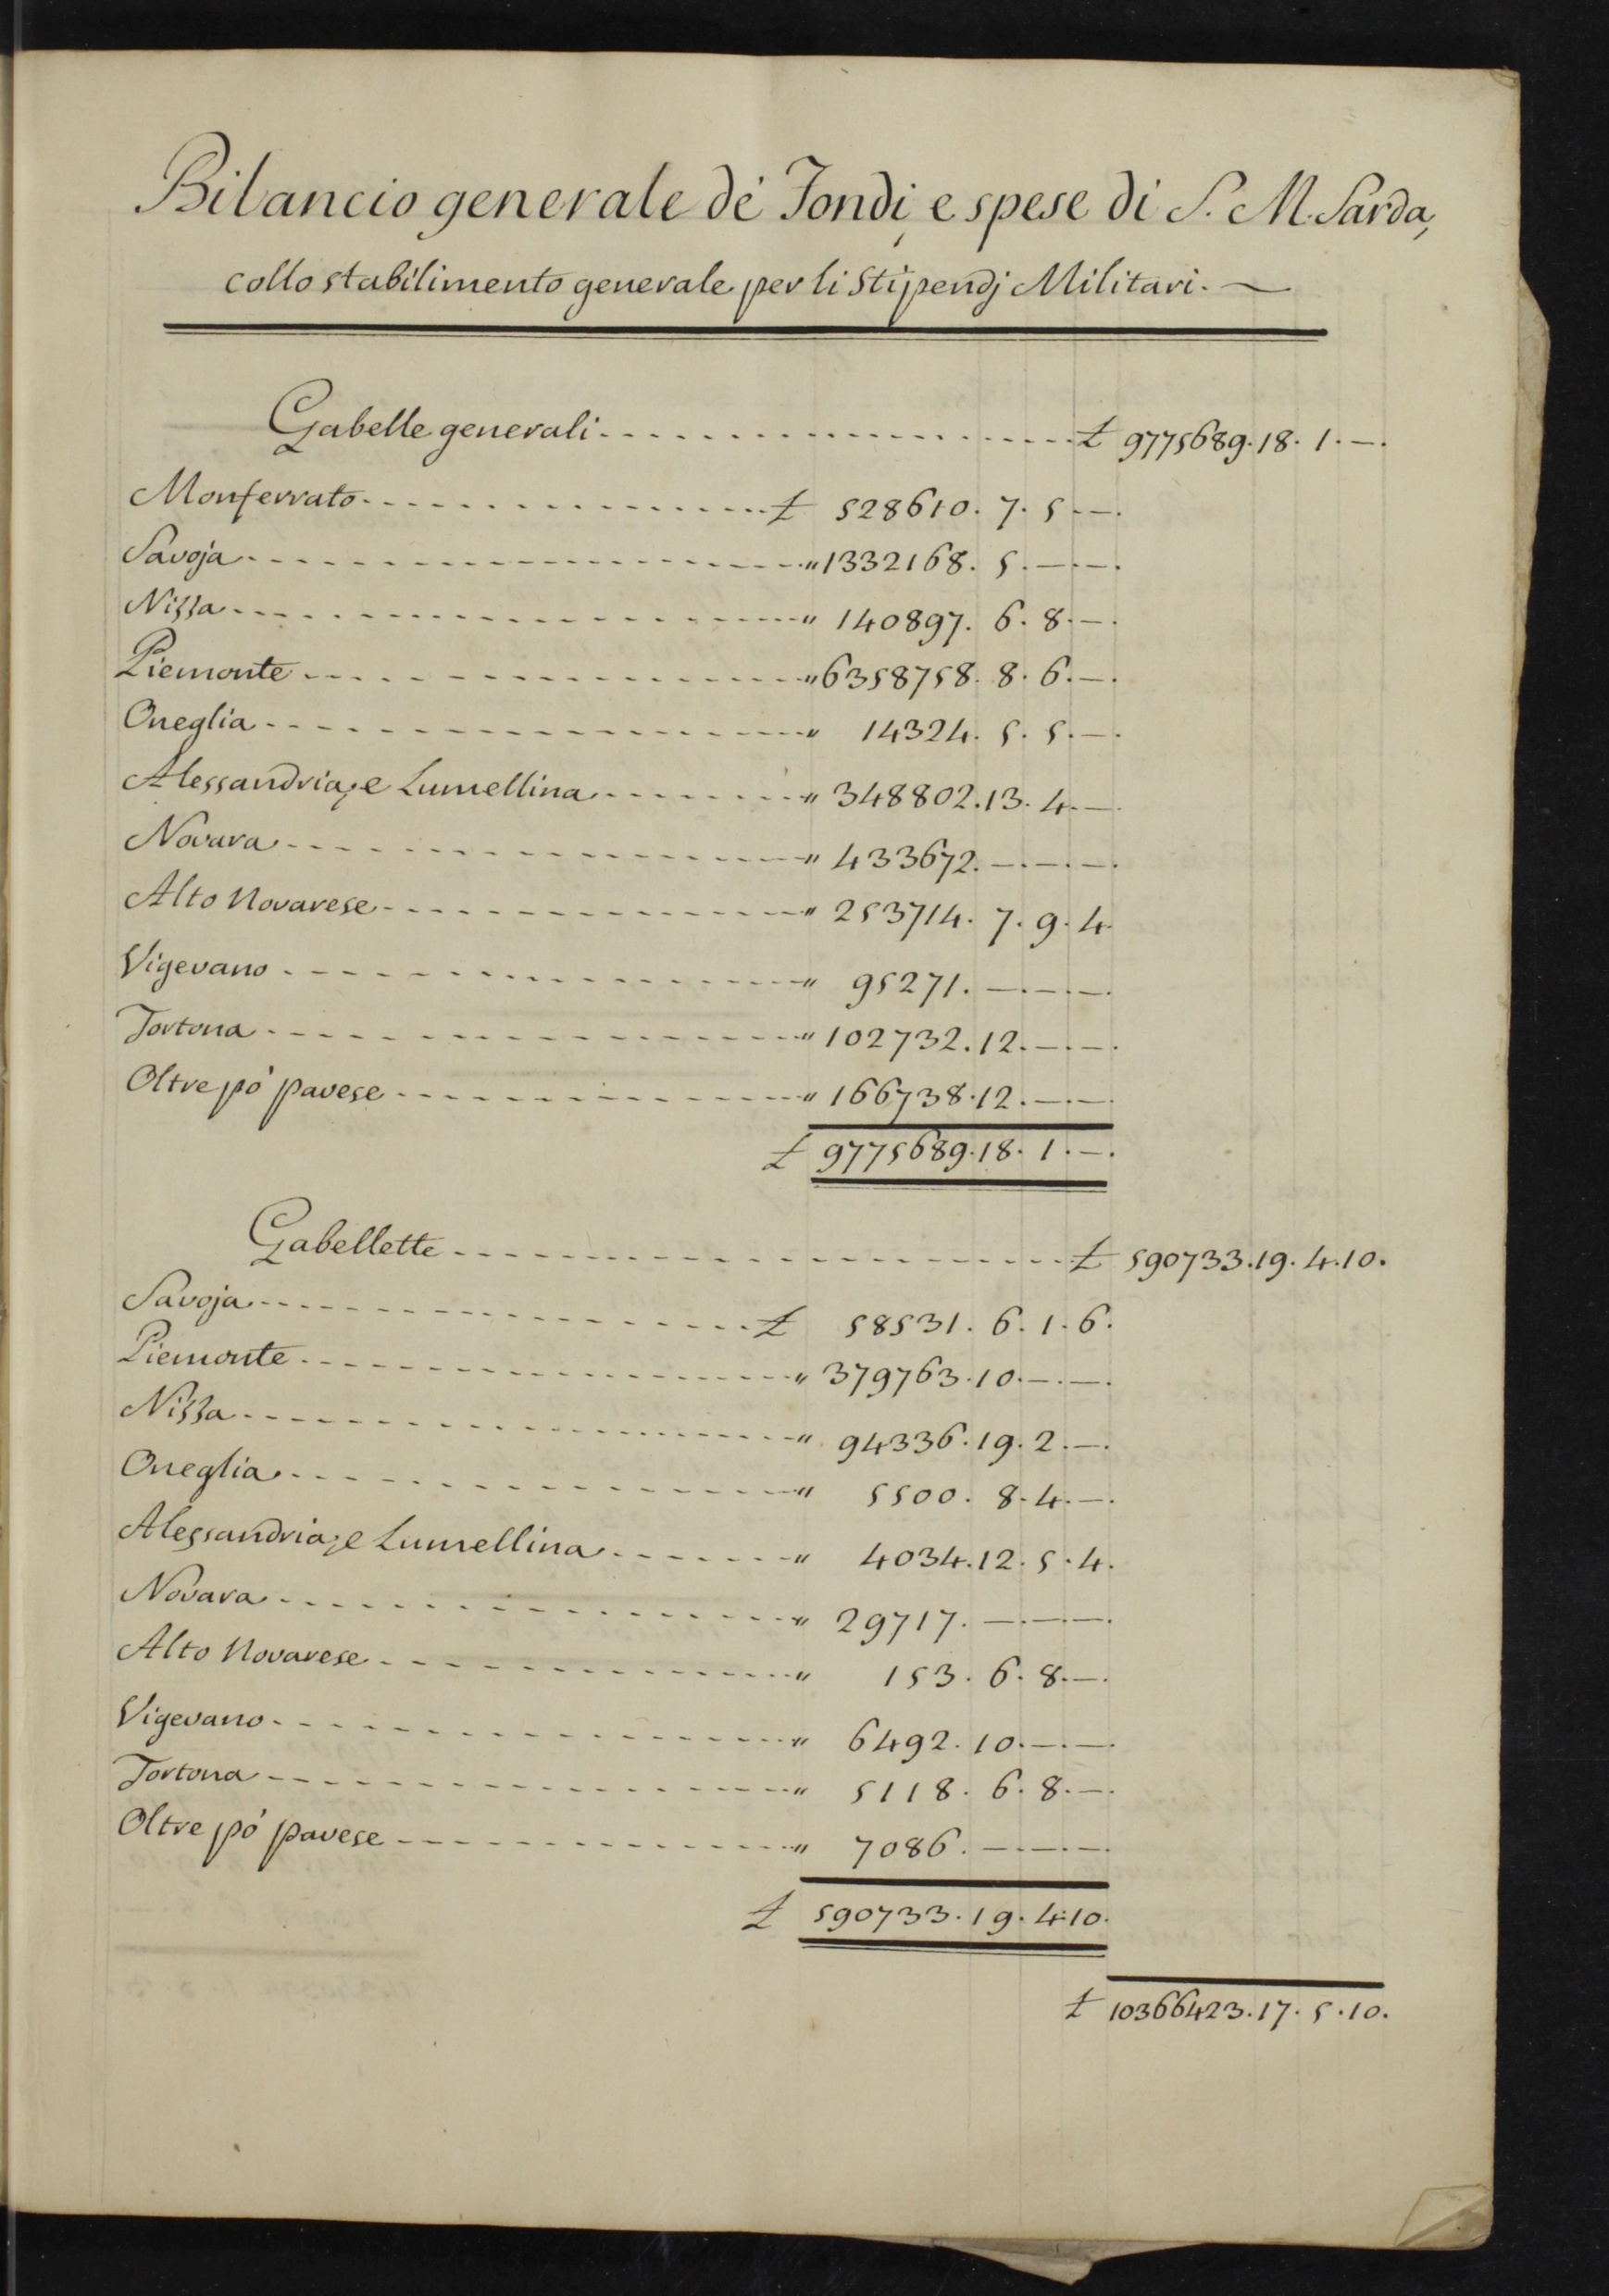 Bilancio generale de' Fondi, e spese di S. M. Sarda,
collo stabilimento generale per li Stipendj Militari. —
Gabelle generali - - - - £ 9775689. 18. 1. —.
Monferrato - - - - £ 528610. 7. 5. —.
Savoja - - - - " 1332168. 5. —. —.
Nizza - - - - " 140897. 6. 8. —.
Piemonte - - - - " 6358758. 8. 6. —.
Oneglia - - - - " 14324. 5. 5. —.
Alessandria, e Lumellina - - - - " 348802. 13. 4. —.
Novara - - - - " 433672. —. —. —.
Alto Novarese - - - - " 253714. 7. 9. 4.
Vigevano - - - - " 95271. —. —. —.
Tortona - - - - " 102732. 12. —. —.
Oltre pò pavese - - - - " 166738. 12. —. —.
£ 9775689. 18. 1. —.
Gabellette - - - - £ 590733. 19. 4. 10.
Savoja - - - - £ 58531. 6. 1. 6.
Piemonte - - - - " 379763. 10. —. —.
Nizza - - - - " 94336. 19. 2. —.
Oneglia - - - - " 5500. 8. 4. —.
Alessandria, e Lumellina - - - - " 4034. 12. 5. 4.
Novara - - - - " 29717. —. —. —.
Alto Novarese - - - - " 153. 6. 8. —.
Vigevano - - - - " 6492. 10. —. —.
Tortona - - - - " 5118. 6. 8. —.
Oltre pò pavese - - - - " 7086. —. —. —.
£ 590733. 19. 4. 10.
£ 10366423. 17. 5. 10.